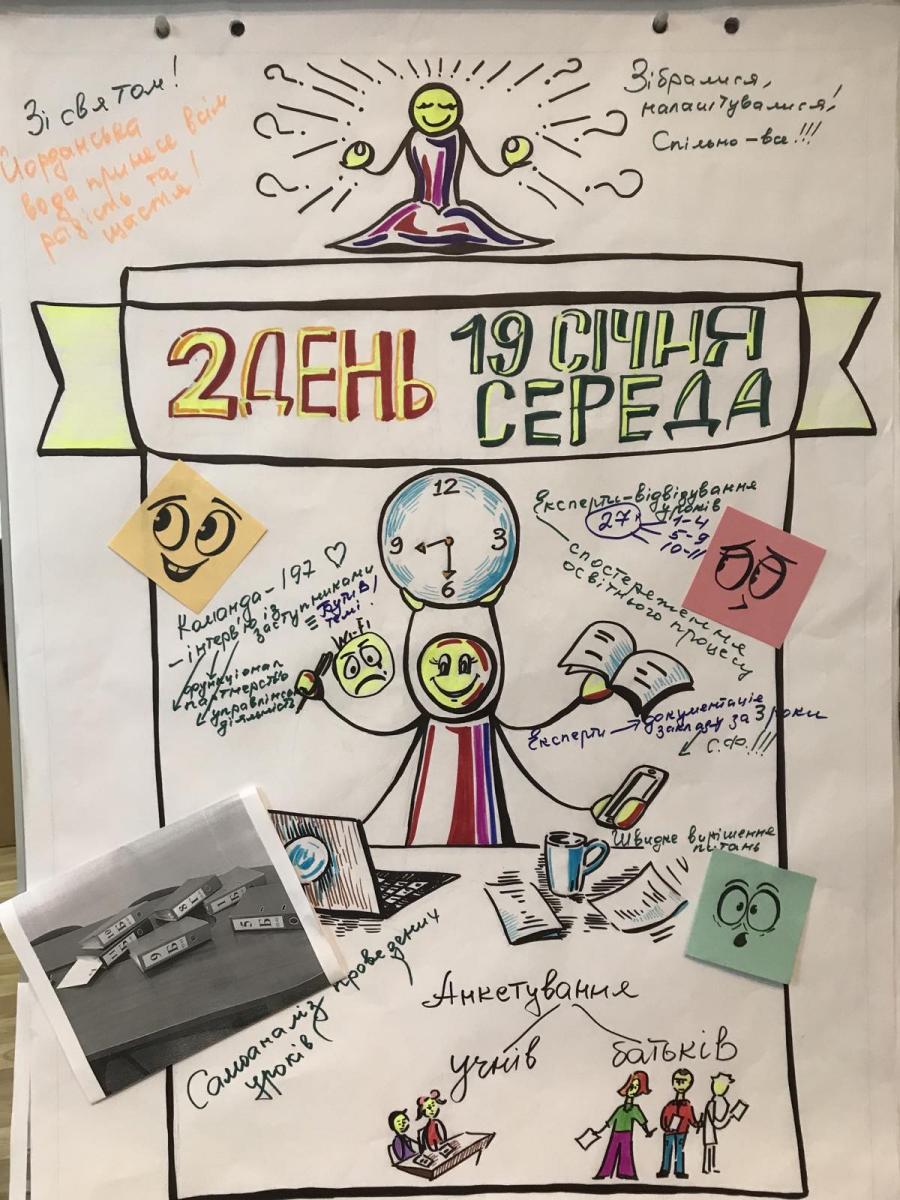 Зі святом!
Йорданська
вода принесе всім
радість та
щастя!
Зібралися,
налаштувалися!
Спільно-все!!!
2 ДЕНЬ
19 СІЧНЯ
СЕРЕДА
12
9
3
6
Експерти-відвідування
уроків
27
1-4
5-9
10-11
спостереження
освітнього процесу
Команда-197
-інтерв'ю із
заступниками
темі
Wi-Fi
партнерство
управлінська
діяльність
Експерти → документація
закладу за 3 роки
С.Ф.!!!
Швидке вирішення
питань
Самоаналіз проведених
уроків
Анкетування
учнів
батьків